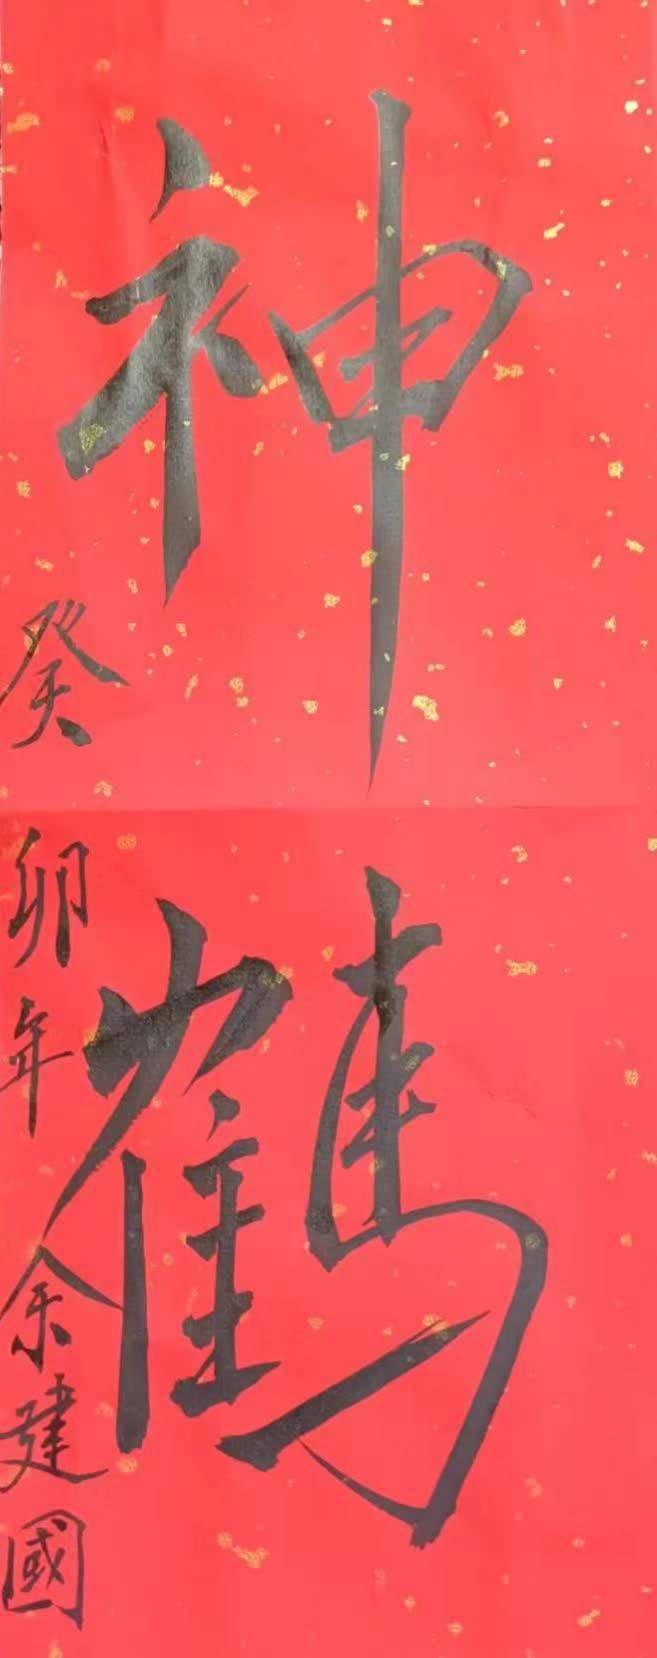 神鶴
癸卯年余建國